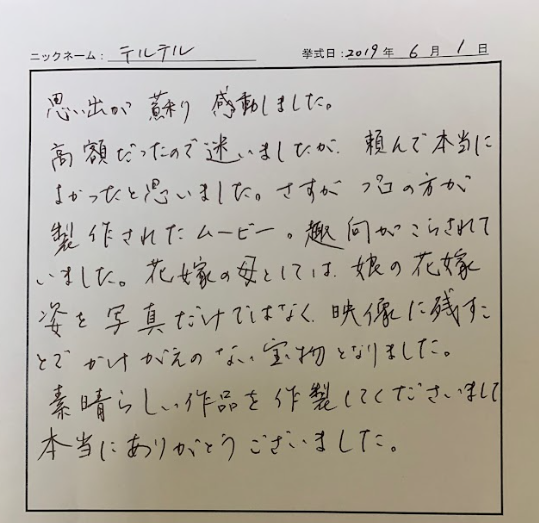 ニックネーム： テルテル 挙式日：2019年 6月 1日
思い出が 蘇り 感動しました。
高額だったので迷いましたが、頼んで本当に
よかったと思いました。さすが プロの方が
製作されたムービー。趣向がこらされて
いました。花嫁の母としては、娘の花嫁
姿を 写真だけではなく、映像に残すこ
とで かけがえのない宝物となりました。
素晴らしい作品を作製してくださいまして
本当にありがとうございました。